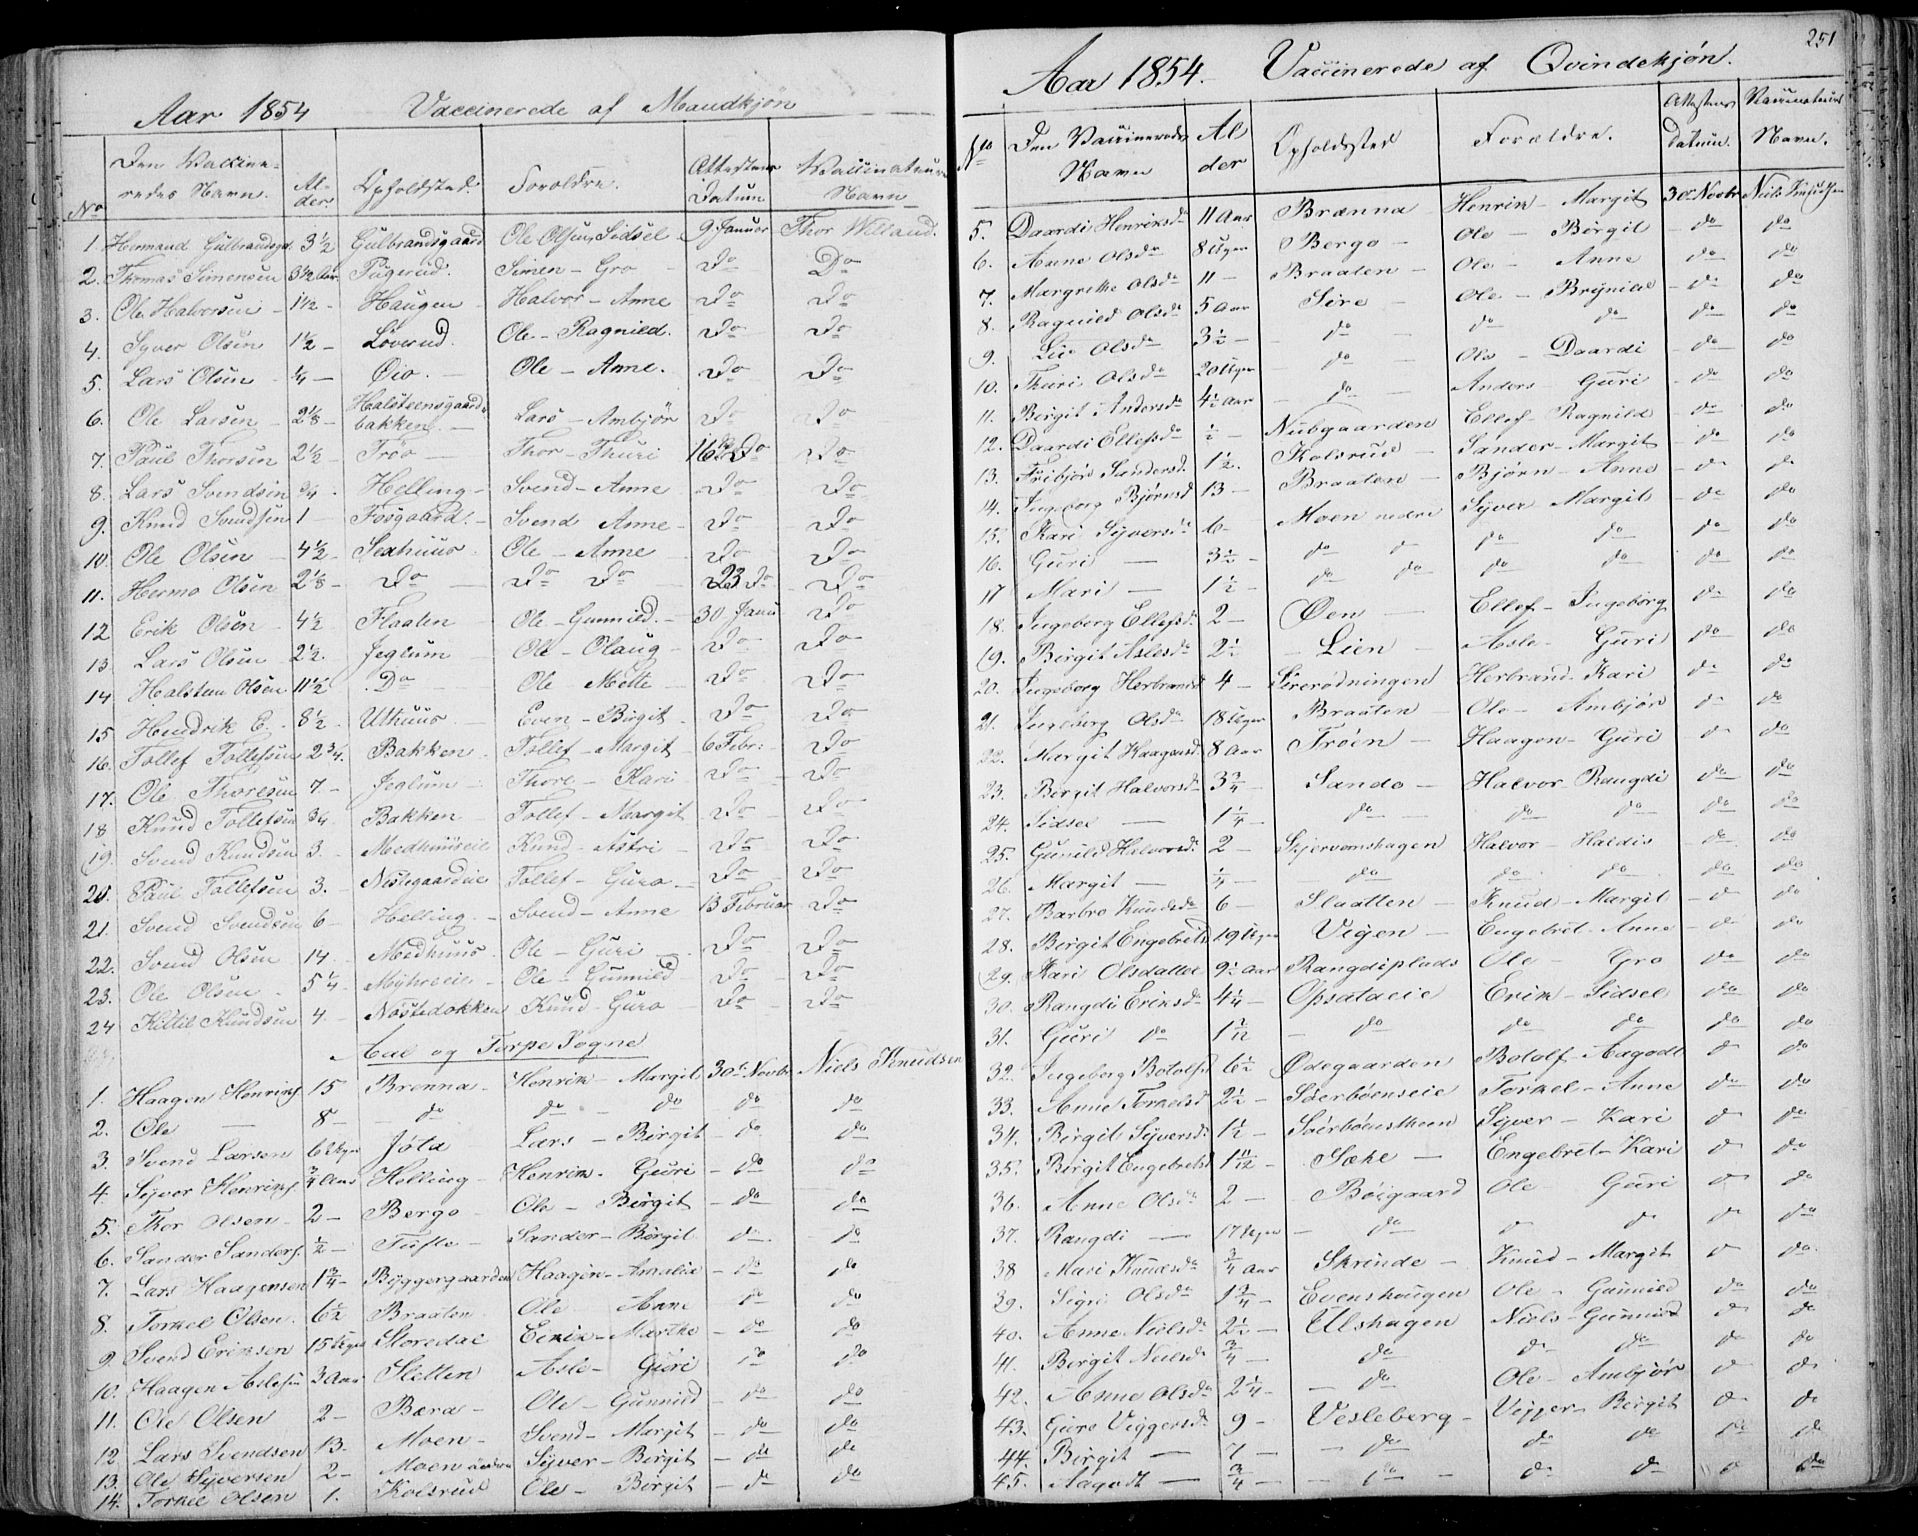 Aar 1854 Vaccinerede af Mandkjøn
No Den Vaccineredes Navn. Alder Opholdsted. Forældre. Attestens Datum Vaccinateurens Navn
1. Hermand Gulbrandsen 3½ Gulbrandsgaard Ole Olsen, Sidsel 9 Januar Thor Willand.
2. Thomas Simensen 3½ Aar Simen - Gro - Do Do
3. Ole Halvorsen - 1½ - Haugen - Halvor - Anne Do Do
4. Syver Olsen 1½ - Løverud. Ole - Ragnild. Do Do
5. Lars Olsen - ¼ - Øio. - Ole - Anne. Do Do
6. Ole Larsen - 2⅛ - Halsteensgaardsbakken. - Lars - Ambjør Do Do
7. Paul Thorsen 2½ - Trøo - Thor - Thuri 16de Do Do
8. Lars Svendsen ¾ - Helling - Svend - Anne - Do Do
9. Knud Svendsen 1 - Fosgaard. - Svend Anne - Do Do
10. Ole Olsen - 4½ - Ole - Anne - Do Do
11. Hermo Olsen 2⅛ - Do - Do Do 23 Do Do
12 Erik Olsen - 4½ - Flaaten - Ole - Gunnild. - 30 Janu Do
13. Lars Olsen - 2½ - Jeglum - Ole - Olaug - Do Do
14 Halsten Olsen 11½ - Do - Ole Mette - Do Do
15 Hendrik E. - 8½ - Uthuus - Even - Birgit - Do Do
16. Tollef Tollefsen 2¾ - Bakken - Tollef - Margit - 6 Febr: Do
17. Ole Thoresen 7 - Jeglum - Thore - Kari - Do Do
18 Knud Tollefsen ¾ - Bakken - Tollef - Margit - Do Do
19. Svend Knudsen 3. - Medhuuseie Knud - Astri - Do Do
20. Paul Tollefsen 3. - Nestegaardeie Tollef - Guro - Do Do
21. Svend Svendsen 6 - Helling - Svend - Anne 13 Februar Do
22. Svend Olsen 14. - Medhuus - Ole - Guri - Do Do
23. Ole Olsen - 5¼ - Myhreeie - Ole - Gunnild Do Do
24 Kittil Knudsen 4 - Nøstedokken Knud - Guro - Do Do
Aal og Torpe Sogne
1. Haagen Henriks. 15 Brenna - Henrik - Margit 30te Novbr Niels Knudsen
2. Ole - 8 - do - do - do do do
3. Svend Larsen 6 Uger Jøla Lars - Birgit - do do
4. Syver Henriks. ¾ Aar Helling - Henrik - Guri - do do
5. Thor Olsen - 2 - Bergo - Ole - Birgit - do do
6. Sander Sanders. ½ - Tufte - Sander - Birgit - do do
7. Lars Haagensen 1¾ - Byggergaarden Haagen - Amalia - do do
8. Torkel Olsen. 6½ - Braaten Ole - Anne - do do
9. Svend Eriksen 15 Uger Storedal Erik - Marthe - do do
10. Haagen Aslesen 3 Aar Sletten Asle - Guri - do do
11. Ole Olsen 2 - Bæra - Ole - Gunnild - do do
12. Lars Svendsen 13 - Moen - Svend - Margit - do do
13. Ole Syversen 2 - Moen nedre Syver - Birgit - do do
14. Torkel Olsen 1. Kolsrud Ole - Birgit - do do
251
Aar 1854. Vaccinerede af Qvindekjøn.
No Den Vaccineredes Navn Alder Opholdsted Forældre. Attestens Datum. Vaccinateurens Navn.
5. Daardi Henriksd 11 Aar Brænna - Henrik - Margit 30te Novbr Niels Knudsen
6. Anne Olsd 8 Uger Bergo - Ole - Birgit - do do
7. Margrethe Olsd 11 - Braaten - Ole - Anne - do do
8. Ragnild Olsd 5 Aar Sire - Ole - Brynild - do do
9. Liv Olsd 3½ - do - do do - do do
10. Thuri Olsd 20 Uger - do - Ole - Daardi - do do
11. Birgit Andersd 4½ Aar - do - Anders - Guri - do do
12. Daardi Ellefsd ½ - Nubgaarden Ellef - Ragnild do do
13. Fribjør Sandersd. 1½. Kolsrud - Sander - Margit - do do
14. Ingeborg Bjørnsd 13 - Braaten - Bjørn - Anne - do do
15. Kari Syversd 6 - Moen nedre Syver Margit - do do
16. Guri - 3½ - do do do do - do do
17 Mari - 1½ - do do do do do do
18. Ingeborg Ellefsd 2 - Øen - Ellef - Ingeborg do do
19. Birgit Aslesd 2½ - Lien - Asle - Guri do do
20. Ingeborg Herbrandsd 4 - Sirerødningen Herbrand - Kari do do
21. Ingeborg Olsd 18 Uger Braaten - Ole - Ambjør do do
22. Margit Haagensd 8 Aar Trøen - Haagen - Guri do do
23. Birgit Halvorsd 3¾ - Sando - Halvor Rangdi do do
24. Sidsel - 1¼ - do - do do do do
25. Gunild Halvorsd 2 - Skjervomshagen Halvor - Haldis - do do
26. Margit - ¼ - - do - do do do do
27. Barbro Knudsd 6 - Slaatten - Knud - Margit - do do
28. Birgit Engebretsd 19 Uger Vigen - Engebret - Anne - do do
29. Kari Olsdatter 9½ Aar Rangdiplads Ole - Gro do do
30. Rangdi Eriksd 4¼ - Opsataeie Erik - Sidsel do do
31. Guri do 1 7/12 - do do do do do
32. Ingeborg Botolfsd 6½ Ødegaarden Botolf - Aagodt do do
33. Anne Torkelsd 2½ - Torkel - Anne do do
34. Birgit Syversd 1½ - Syver - Kari do do
35. Birgit Engebretsd 1 11/12 - Søke - Engebret - Kari do do
36. Anne Olsd 2 - Bøigaard Ole - Guri do do
37. Rangdi - 17 Uger - do - do do do do
38 Mari Knudsd ¾ Aar Skrinde - Knud - Margit do do
39. Sigri Olsd 1¾ - Evenshaugen Ole - Gunnild do do
40. Anne Nielsd 2½ - Ulshagen Niels - Gunnild do do
41. Birgit Nielsd ¾ - do - do do do do
42. Anne Olsd 2¼ - - do - Ole - Ambjør do do
43. Guro Viggersd 9 - Vesleberg - Vigger - Birgit do do
44. Birgit - 7 - - do - do do do do
45. Aagodt - ¾ - - do - do do do do